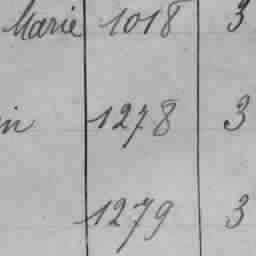 Marie 1018 3
in 1278 3
1279 3